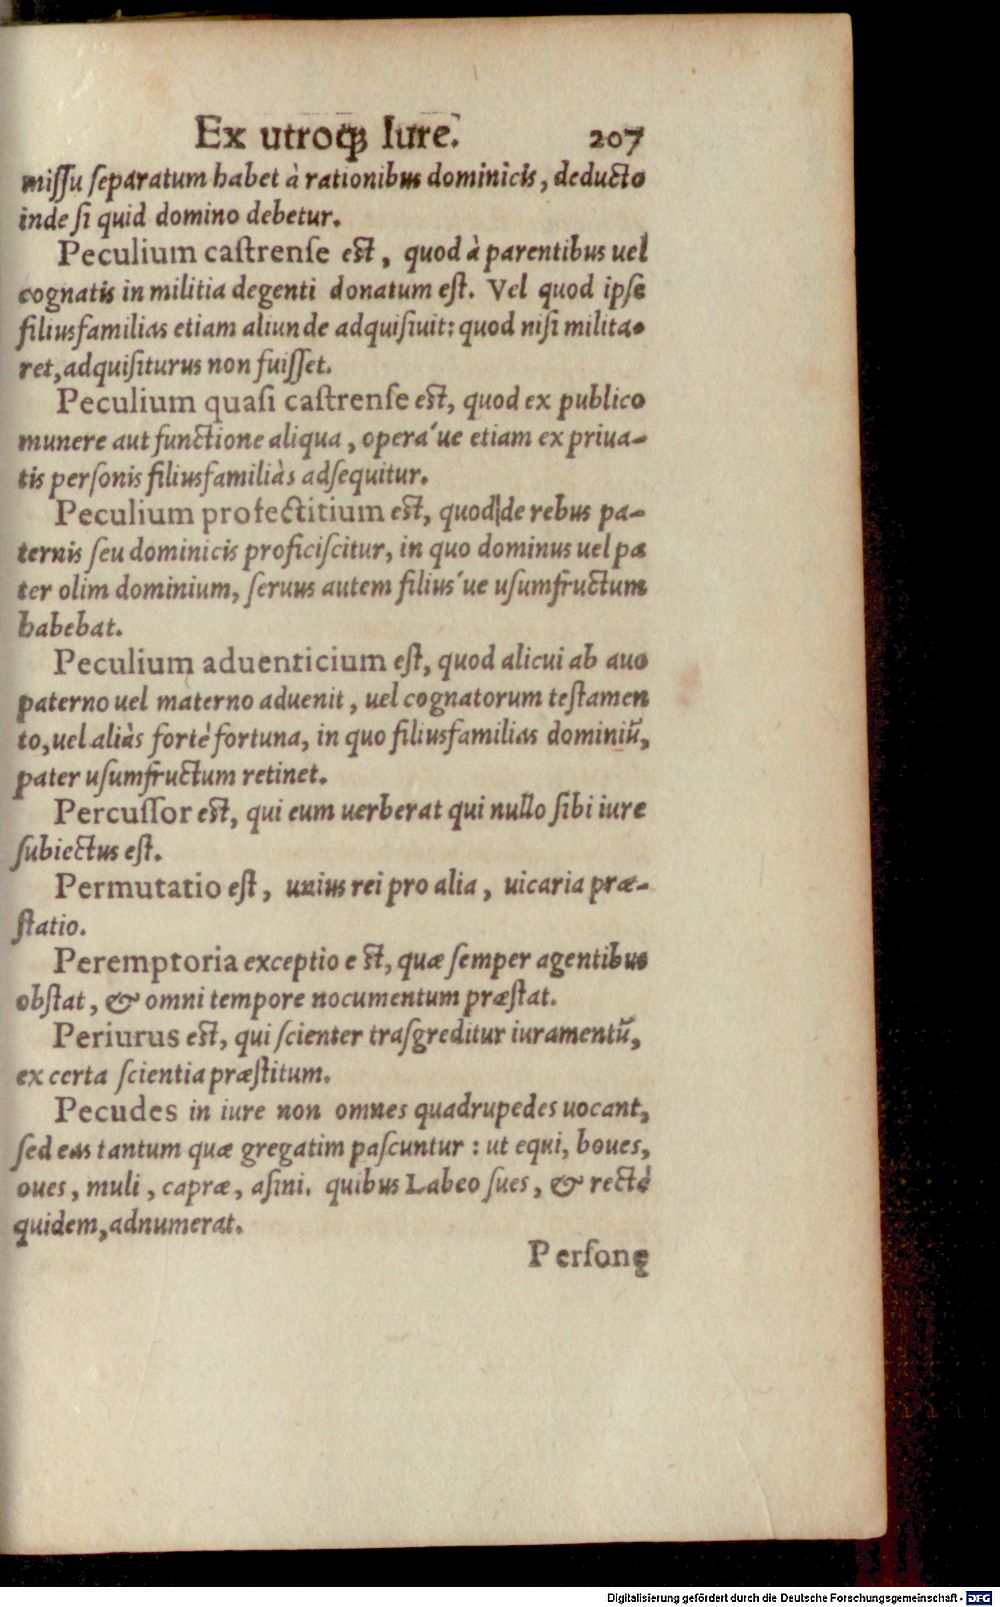 Ex utroq́ꝫ Iure. 207
miſſu ſeparatum habet à rationibus dominicis, deducto
inde ſi quid domino debetur.
Peculium caſtrenſe eſt, quod à parentibus uel
cognatis in militia degenti donatum eſt. Vel quod ipſe
filiusfamilias etiam aliunde adquiſiuit: quod niſi milita-
ret, adquiſiturus non fuiſſet.
Peculium quaſi caſtrenſe eſt, quod ex publico
munere aut functione aliqua, opera´ue etiam ex priua-
tis perſonis filiusfamiliàs adſequitur.
Peculium profectitium eſt, quod de rebus pa-
ternis ſeu dominicis proficiſcitur, in quo dominus uel pa
ter olim dominium, ſeruus autem filius´ue uſumfructum
habebat.
Peculium aduenticium eſt, quod alicui ab auo
paterno uel materno aduenit, uel cognatorum teſtamen
to, uel aliàs fortè fortuna, in quo filiusfamilias dominiũ,
pater uſumfructum retinet.
Percuſſor eſt, qui eum uerberat qui nullo ſibi iure
ſubiectus eſt.
Permutatio eſt, unius rei pro alia, uicaria præ-
ſtatio.
Peremptoria exceptio eſt, quæ ſemper agentibus
obſtat, & omni tempore nocumentum præſtat.
Periurus eſt, qui ſcienter traſgreditur iuramentũ,
ex certa ſcientia præſtitum.
Pecudes in iure non omnes quadrupedes uocant,
ſed eas tantum quæ gregatim paſcuntur: ut equi, boues,
oues, muli, capræ, aſini. quibus Labeo ſues, & rectè
quidem, adnumerat.
Perſonę
Digitalisierung gefördert durch die Deutsche Forschungsgemeinschaft - DFG